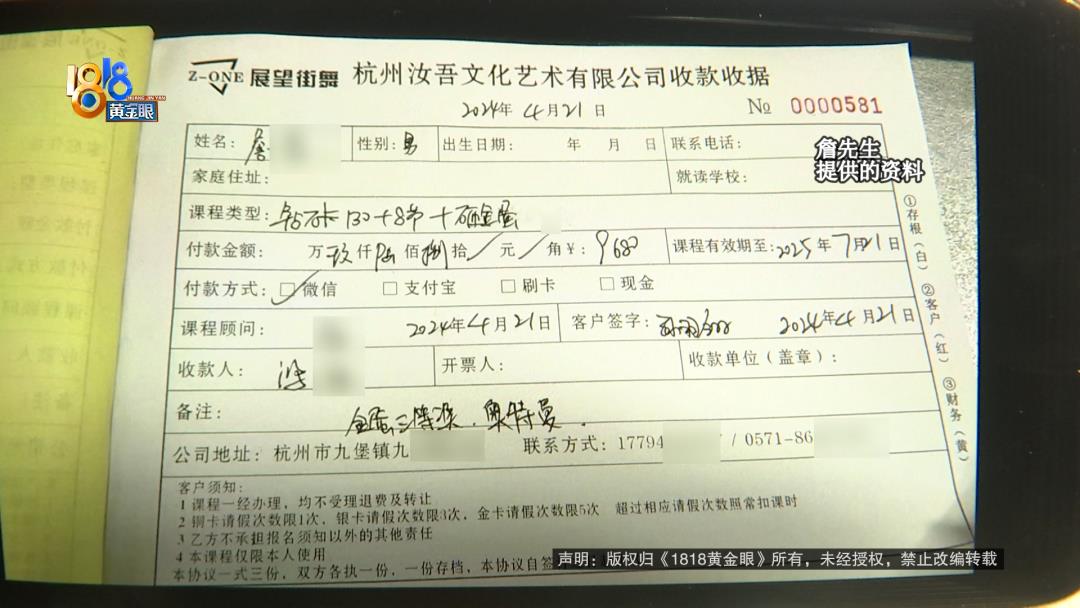 1818
HUANG JIN YAN
黄金眼
Z-ONE 展望街舞 杭州汝吾文化艺术有限公司收款收据
2024年 4月21日 № 0000581
姓名：詹 性别：男 出生日期： 年 月 日 联系电话：
詹先生
提供的资料
家庭住址： 就读学校：
课程类型：钻石卡130+8节+砸金蛋
付款金额： 万玖仟陆佰捌拾 元 角￥：9680 课程有效期至：2025年7月21日
付款方式： 微信 支付宝 刷卡 现金
课程顾问： 2024年4月21日 客户签字： 2024年4月21日
收款人： 开票人： 收款单位（盖章）：
备注： 金蛋三等奖、奥特曼.
公司地址：杭州市九堡镇九 联系方式：17794 / 0571-86
①存根（白） ②客户（红） ③财务（黄）
客户须知：
1 课程一经办理，均不受理退费及转让
2 铜卡请假次数限1次，银卡请假次数限3次，金卡请假次数限5次 超过相应请假次数照常扣课时
3 乙方不承担报名须知以外的其他责任
4 本课程仅限本人使用
本协议一式三份，双方各执一份，一份存档，本协议自签
声明：版权归《1818黄金眼》所有，未经授权，禁止改编转载